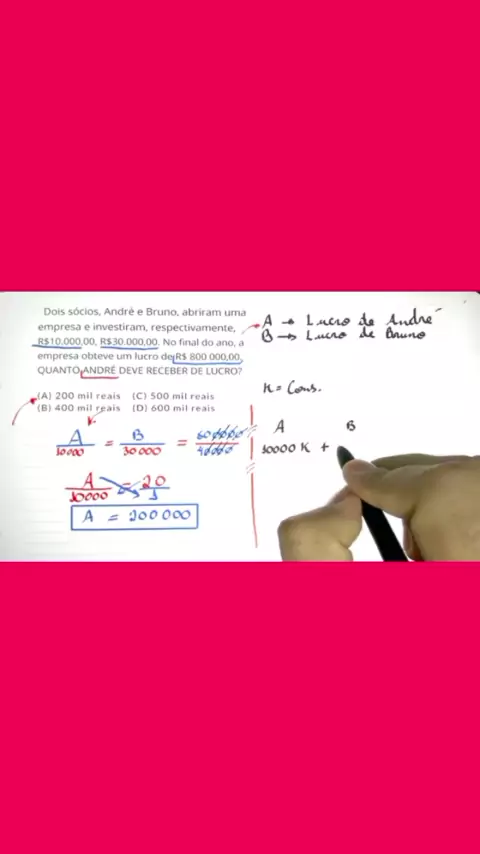 Dois sócios, André e Bruno, abriram uma
empresa e investiram, respectivamente,
R$10.000,00, R$30.000,00. No final do ano, a
empresa obteve um lucro de R$ 800 000,00.
QUANTO ANDRÉ DEVE RECEBER DE LUCRO?
(A) 200 mil reais (C) 500 mil reais
(B) 400 mil reais (D) 600 mil reais
A = B =
10000 30000 40000
A = 20
10000 1
A = 200 000
A → Lucro de André
B → Lucro de Bruno
K = Cons.
A B
10000 K +